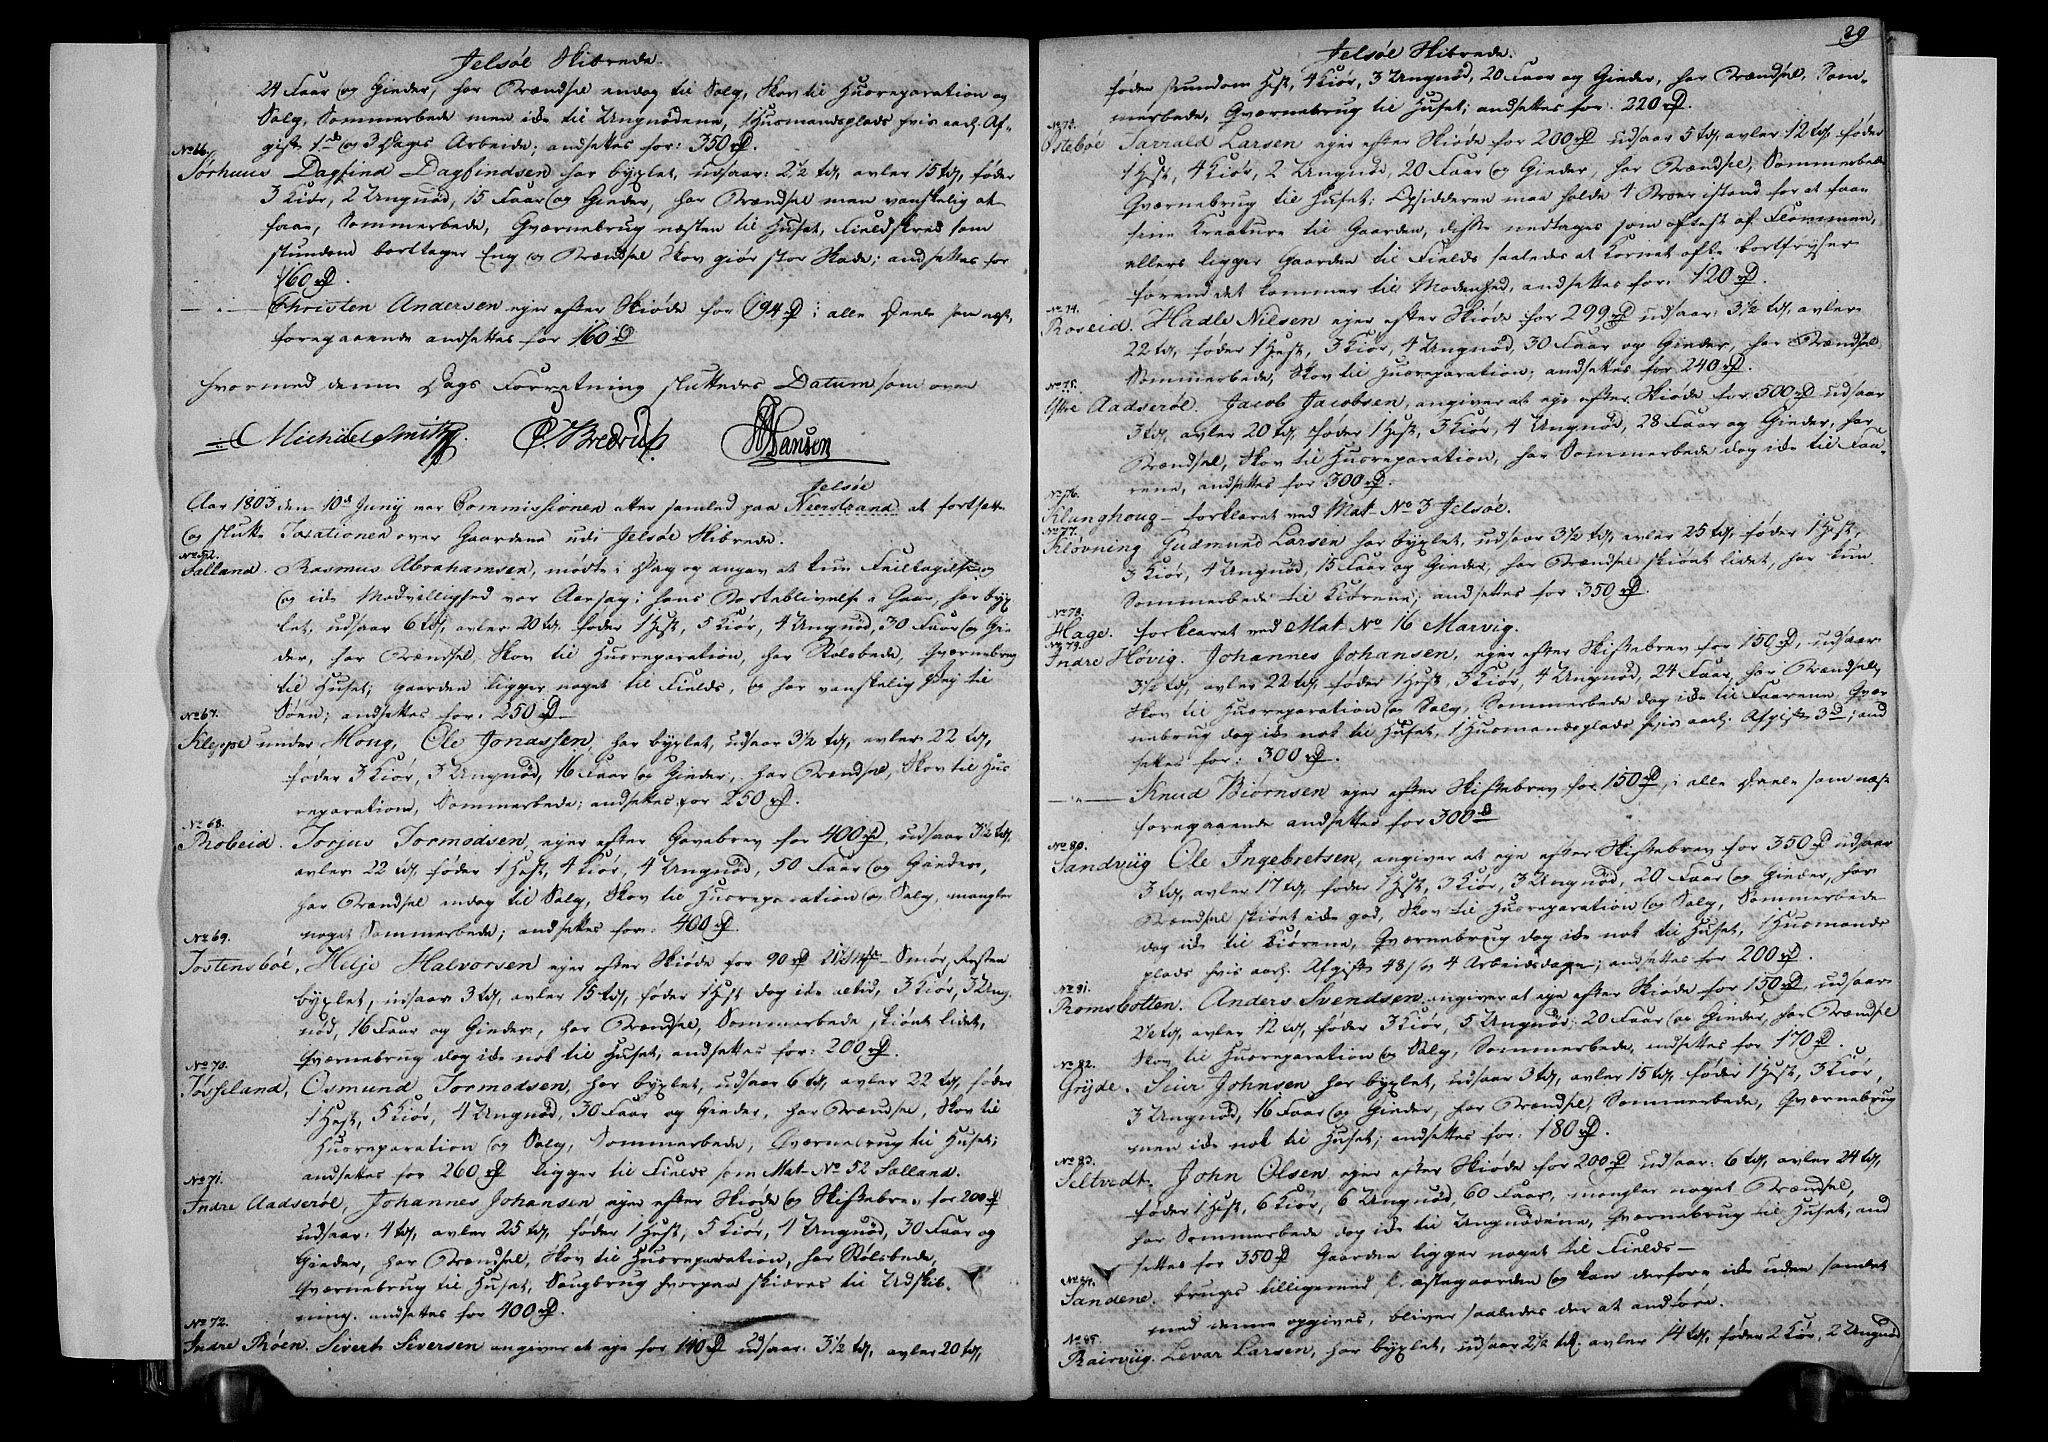 Jelsøe Skibrede.
24 Faar og Gieder, har Brændsel endog til Salg, Skov til Huusreparation og
Salg, Sommerbede men ikke til Ungnødene, 1 Huusmandsplads hvis aarl. Af-
gift 1 rd og 3 Dags Arbeide; andsættes for: 350 rD.
No 66.
Sørhuus Dagfind Dagfindsen har byxlet, udsaar: 2½ td, avler 15 td, føder
3 Kiør, 2 Ungnød, 15 Faar og Gieder, har Brændsel men vanskelig at
faae, Sommerbede, Qværnebrug næsten til Huset, Fieldskred som
stundom borttager Eng og Brændsel Skov giør stor Skade; andsættes for
160 rD.
— " — Christen Andersen eger efter Skiøde for 94 rD i alle Deele som næst
foregaaende andsættes for 160 rD
Hvormed denne Dags Forretning sluttedes Datum som oven
Michael Smith. C. Bredrup. Hansen
Jelsøe
Aar 1803 den 10de Juny var Commissionen atter samled paa Neerstrand at fortsætte
og slutte Taxationen over Gaardene udi Jelsøe Skibrede.
No 52.
Salland. Rasmus Abrahamsen, mødte i Dag og angav at kun Feiltagelse
og ikke Modvillighed var Aarsag i hans Borteblivelse i Gaar, har byx
let, udsaar 6 td, avler 20 td, føder 1 Hest, 5 Kiør, 4 Ungnød, 30 Faar og Gie-
der, har Brændsel, Skov til Huusreparation, har Stolsbede, Qværnebrug
til Huset; gaarden ligger noget til Fields, og har vanskelig Vej til
Søen; andsættes for: 250 rD
No 67.
Kleppe under Houg, Ole Jonassen, har byxlet, udsaar 3½ td, avler 22 td,
føder 3 Kiør, 3 Ungnød, 16 Faar og Gieder, har Brændsel, Skov til Huus
reparation, Sommerbede; andsættes for 250 rD.
No 68.
Robeid. Torjus Tormodsen, eger efter Gavebrev for 400 rD, udsaar 3½ td,
avler 22 td, føder 1 Hest, 4 Kiør, 4 Ungnød, 50 Faar og Gieder,
har Brændsel endog til Salg, Skov til Huusreparation og Salg, mangler
noget Sommerbede; andsættes for: 400 rD.
No 69.
Tostensbøe, Helje Halvorsen eger efter Skiøde for 90 rD Smør, Resten
byxlet, udsaar 3 td, avler 15 td, føder 1 Hest dog ikke altid, 3 Kiør, 3 Ung-
nød, 16 Faar og Gieder, har Brændsel, Sommerbede skiønt lidet,
Qværnebrug dog ikke nok til Huset; andsættes for: 200 rD.
No 70.
Tøsseland, Osmund Tormodsen, har byxlet, udsaar 6 td, avler 22 td, føder
1 Hest, 5 Kiør, 4 Ungnød, 30 Faar og Gieder, har Brændsel, Skov til
Huusreparation og Salg, Sommerbede, Qværnebrug til Huset;
andsættes for 260 rD ligger til Fields som Mat. No 52 Salland.
No 71.
Indre Aadserøl, Johannes Johansen eger efter Skiøde og Skiftebrev for 200 rD
udsaar: 4 td, avler 25 td, føder 1 Hest, 5 Kiør, 4 Ungnød, 30 Faar og
Gieder, har Brændsel, Skov til Huusreparation, har Stølsbede,
Qværnebrug til Huset, Saugbrug hvorpaa skiæres til Udskib-
ning. andsættes for 400 rD.
No 72.
Indre Røen. Sivert Siversen angiver at eje for 140 rD udsaar: 3½ td, avler 20 td,
39
Jelsøe Skibrede.
føder stundom Hest, 4 Kiør, 3 Ungnød, 20 Faar og Gieder, har Brændsel, Som-
merbede, Qværnebrug til Huset; andsættes for 220 rD.
No 73.
Østebøe Tarrald Larsen eger efter Skiøde for 200 rD udsaar 5 td, avler 12 td, føder
1 Hest, 4 Kiør, 2 Ungnød, 20 Faar og Gieder, har Brændsel, Sommerbede
Qværnebrug til Huset; Opsidderen maa holde 4 Broer istand for at faae
sine Kreature til Gaarden, disse nedtages som oftest af Flommen,
ellers ligger Gaarden til Fields saaledes at Kornet ofte bortfryser
forend det kommer til Modenhed, andsættes for 120 rD.
No 74.
Roreid. Hadle Nilsen eger efter Skiøde for 299 rD udsaar: 3½ td, avler
22 td, føder 1 Hest, 3 Kiør, 4 Ungnød, 30 Faar og Gieder, har Brændsel,
Sommerbede, Skov til Huusreparation; andsættes for 240 rD.
No 75.
Ytre Aadserøl. Jacob Jacobsen, angiver at eje efter Skiøde for 500 rD udsaar
3 td, avler 20 td, føder 1 Hest, 3 Kiør, 4 Ungnød, 28 Faar og Gieder, har
Brændsel, Skov til Huusreparation, har Sommerbede dog ikke til Faa-
rene, andsættes for 300 rD.
No 76.
Klunghoug — forklaret ved Mat. No 3 Jelsøe.
No 77.
Kløvning Gudmund Larsen har byxlet, udsaar 3½ td, avler 25 td, føder 1 Hest,
3 Kiør, 4 Ungnød, 15 Faar og Gieder, har Brændsel skiønt lidet, har kun
Sommerbede til Kiørene; andsættes for 350 rD.
No 78.
Hage. forklaret ved Mat. No 16 Marvig.
No 79.
Indre Høvig. Johannes Johansen, eger efter Skiftebrev for 150 rD, udsaar
3½ td, avler 22 td, føder 1 Hest, 3 Kiør, 4 Ungnød, 24 Faar, har Brændsel,
Skov til Huusreparation og Salg, Sommerbede dog ikke til Faarene, Qvær
nebrug dog ikke nok til Huset, 1 Huusmandsplads hvis aarl. Afgift 3 D; and
sættes for: 300 rD.
— " — Knud Biørnsen eger efter Skiftebrev for 150 rD, i alle Deele som næst
foregaaende andsættes for 300 D
No 80.
Sandviig Ole Ingebretsen, angiver at eje efter Skiftebrev for 350 rD udsaar
3 td, avler 17 td, føder 1 Hest, 3 Kiør, 3 Ungnød, 20 Faar og Gieder, har
Brændsel skiønt ikke god, Skov til Huusreparation og Salg, Sommerbede
dog ikke til Kiørene, Qværnebrug dog ikke nok til Huset, 1 Huusmands
plads hvis aarl. Afgift 48 s og 4 Arbeidsdage; andsættes for 200 rD.
No 81.
Romsbotten. Anders Svendsen angiver at eje efter Skiøde for 150 rD, udsaar
2 td, avler 12 td, føder 3 Kiør, 5 Ungnød; 20 Faar og Gieder, har Brændsel
Skov til Huusreparation og Salg, Sommerbede, andsættes for 170 rD.
No 82.
Gryde. Siur Johnsen har byxlet, udsaar 3 td, avler 15 td, føder 1 Hest, 3 Kiør,
3 Ungnød, 16 Faar og Gieder, har Brændsel, Sommerbede, Qværnebrug
men ikke nok til Huset; andsættes for: 180 rD.
No 83.
Teltvedt. John Olsen eger efter Skiøde for 200 rD udsaar: 6 td, avler 24 td,
føder 1 Hest, 6 Kiør, 6 Ungnød, 60 Faar, mangler noget Brændsel,
har Sommerbede dog ikke til Ungnødene, Qværnebrug til Huset, and
sættes for 350 rD Gaarden ligger noget til Fields —
No 84.
Sandene. bruges tilligemed Præstegaarden og kan derfore ikke uden samlet
med denne opgives, bliver saaledes der at andføre.
No 85.
Rairviig. Levar Larsen, har byxlet, udsaar 2½ td, avler 14 td, føder 2 Kiør, 2 Ungnød